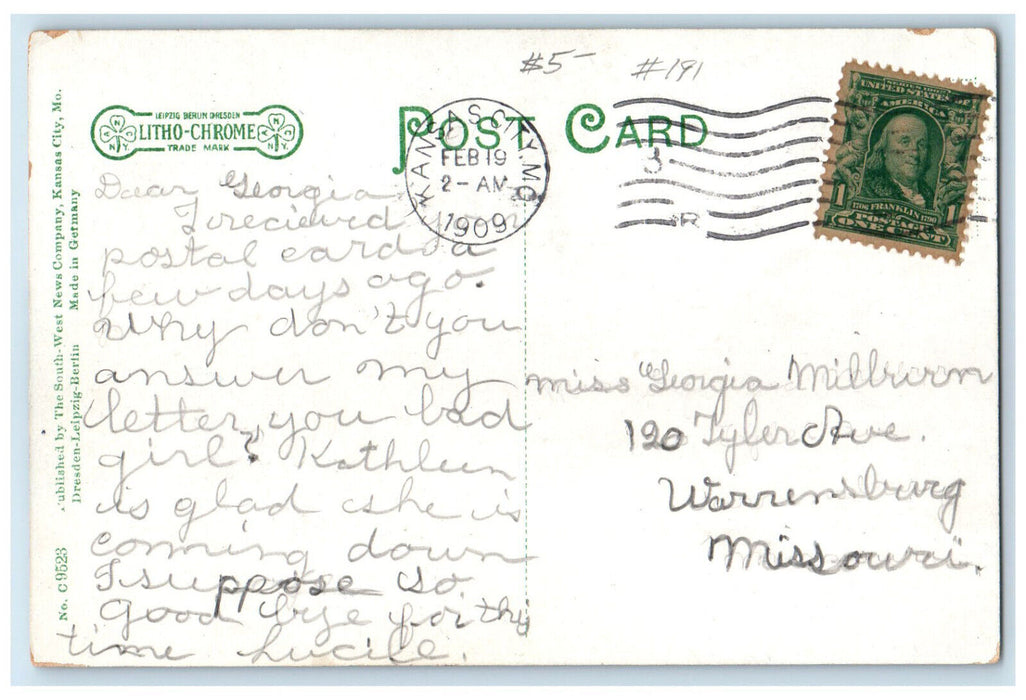 $5- #191
LEIPZIG BERLIN DRESDEN
LITHO-CHROME
TRADE MARK
N.Y.
N.Y.
POST CARD
KANSAS CITY, MO.
FEB 19
2-AM
1909
SERIES 1902
UNITED STATES OF
AMERICA
1 1
1706 FRANKLIN 1790
POSTAGE
ONE CENT
Dear Georgia
I recieved
postal card a
few days ago.
Why don't you
answer my
letter, you bad
girl? Kathleen
is glad she is
coming down
I suppose so
Good bye for thi
time Lucile.
Miss Georgia Millburn
120 Tyler Ave.
Warrensburg
Missouri.
No. C 9523 Published by The South-West News Company, Kansas City, Mo.
Dresden-Leipzig-Berlin Made in Germany